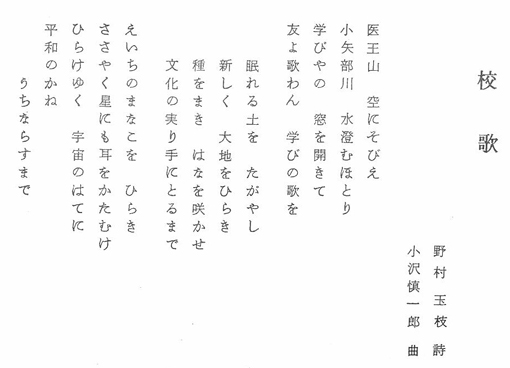 校歌
野村玉枝 詩
小沢慎一郎 曲
医王山 空にそびえ
小矢部川 水澄むほとり
学びやの 窓を開きて
友よ歌わん 学びの歌を
眠れる土を たがやし
新しく 大地をひらき
種をまき はなを咲かせ
文化の実り手にとるまで
えいちのまなこを ひらき
ささやく星にも耳をかたむけ
ひらけゆく 宇宙のはてに
平和のかね
うちならすまで